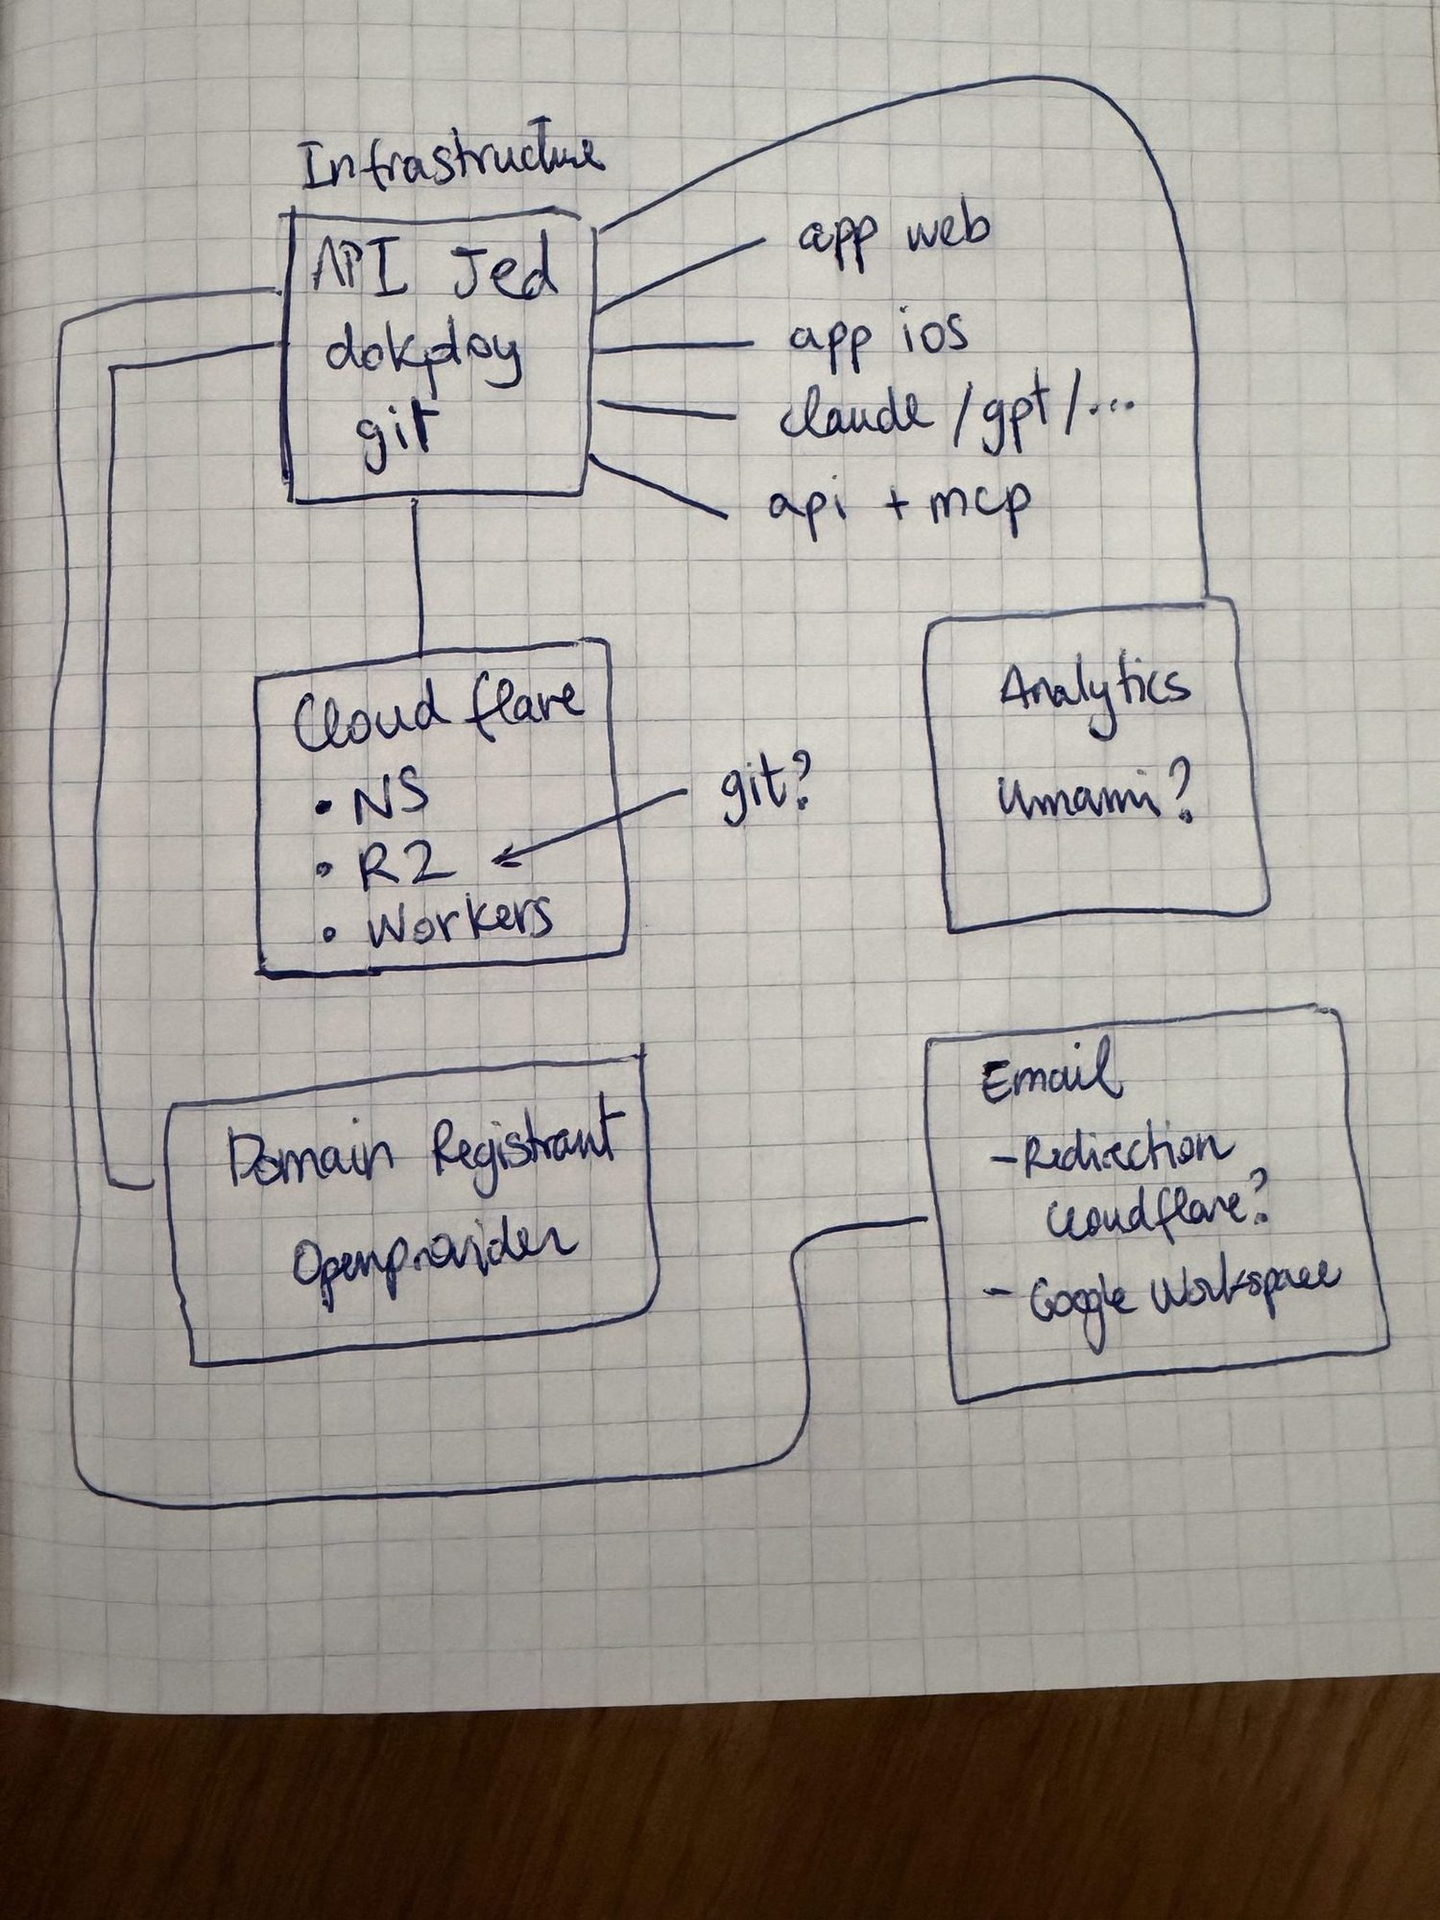 Infrastructure
API Jed
dokploy
git
app web
app ios
claude / gpt / ...
api + mcp
Cloudflare
• NS
• R2
• Workers
git?
Analytics
Umami?
Domain Registrant
Openprovider
Email
- Redirection
Cloudflare?
- Google Workspace